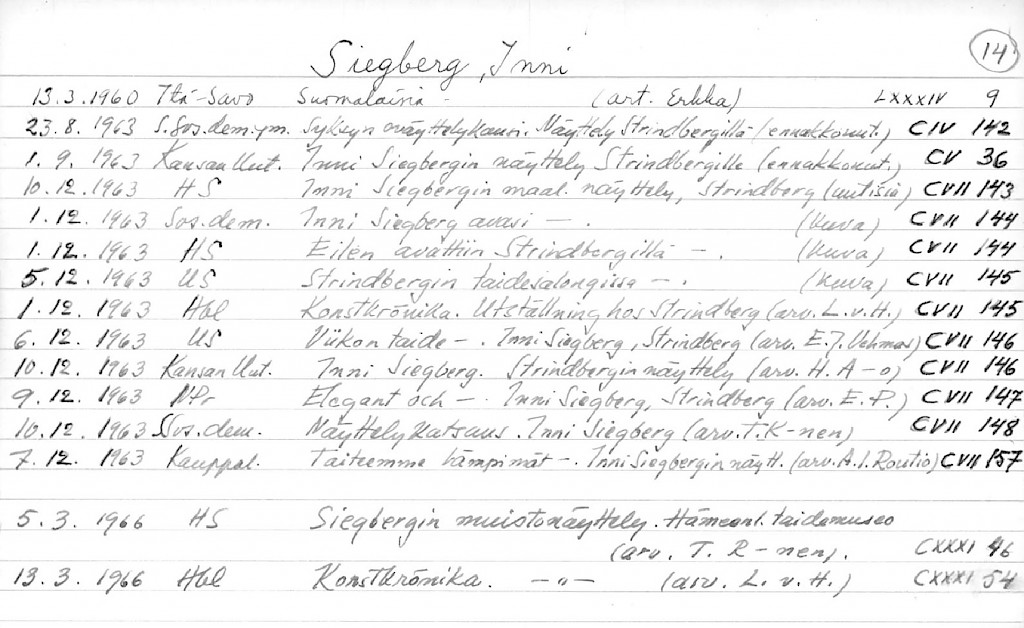 14
Siegberg, Inni
13.3.1960 Itä-Savo Suomalaisia - (art. Erkka) LXXXIV 9
23.8.1963 S.Sos.dem. Syksyn näyttelykausi. Näyttely Strindbergillä (ennakkouut.) CIV 142
1.9.1963 Kansan Uut. Inni Siegbergin näyttely Strindbergille (ennakkouut.) CV 36
10.12.1963 HS Inni Siegbergin maal. näyttely, Strindberg (uutisia) CVII 143
1.12.1963 Sos.dem. Inni Siegberg avasi -. (kuva) CVII 144
1.12.1963 HS Eilen avattiin Strindbergillä -. (kuva) CVII 144
5.12.1963 US Strindbergin taidesalongissa -. (kuva) CVII 145
1.12.1963 Hbl Konstkrönika. Utställning hos Strindberg (arv. L.v.H.) CVII 145
6.12.1963 US Viikon taide -. Inni Siegberg, Strindberg (arv. E.J. Vehmas) CVII 146
10.12.1963 Kansan Uut. Inni Siegberg. Strindbergin näyttely (arv. H. A-o) CVII 146
9.12.1963 NPr Elegant och -. Inni Siegberg, Strindberg (arv. E.P.) CVII 147
10.12.1963 SSos.dem. Näyttelykatsaus. Inni Siegberg (arv. T.K-nen) CVII 148
7.12.1963 Kauppal. Taiteemme lämpimät -. Inni Siegbergin näytt. (arv. A.I. Routio) CVII 157
5.3.1966 HS Siegbergin muistonäyttely. Hämeenl. taidemuseo
(arv. T. R-nen). CXXXI 46
13.3.1966 Hbl Konstkrönika. -"- (arv. L. v. H.) CXXXI 54